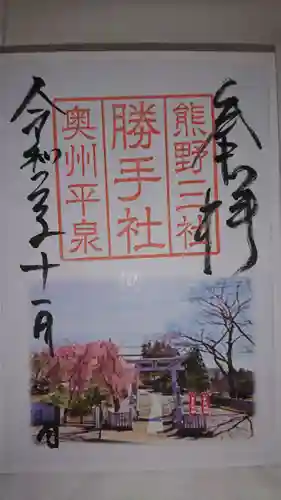 奉拝
熊野三社
勝手社
奥州平泉
令和元年十一月
日